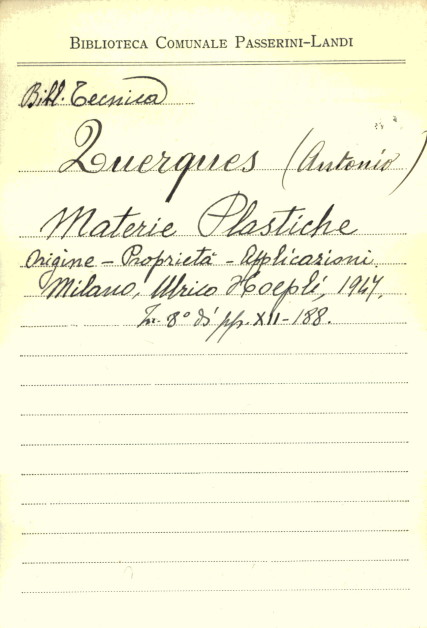 BIBLIOTECA COMUNALE PASSERINI-LANDI
Bibl. Tecnica
Querques (Antonio)
Materie Plastiche
Origine - Proprietà - Applicazioni.
Milano, Ulrico Hoepli, 1947.
In-8° di pp. XII-188.